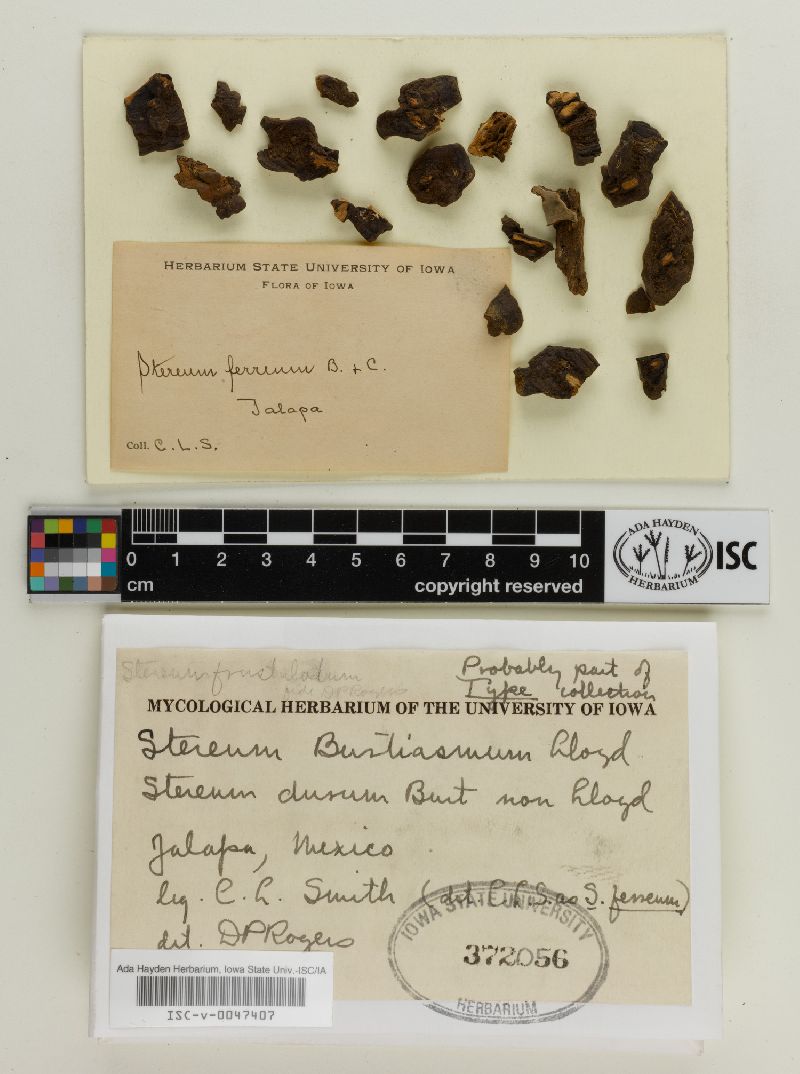 HERBARIUM STATE UNIVERSITY OF IOWA
FLORA OF IOWA
Stereum ferreum B. & C.
Jalapa
Coll. C. L. S.
0 1 2 3 4 5 6 7 8 9 10
cm
copyright reserved
ADA HAYDEN
HERBARIUM
ISC
Stereum frustulatum
fide DPRogers
Probably part of
Type collection
MYCOLOGICAL HERBARIUM OF THE UNIVERSITY OF IOWA
Stereum Burtiasmum Lloyd
Stereum durum Burt non Lloyd
Jalapa, Mexico
leg. C. L. Smith (det. C.L.S. as S. ferreum)
det. DPRogers
IOWA STATE UNIVERSITY
372056
HERBARIUM
Ada Hayden Herbarium, Iowa State Univ.-ISC/IA
ISC-v-0047407